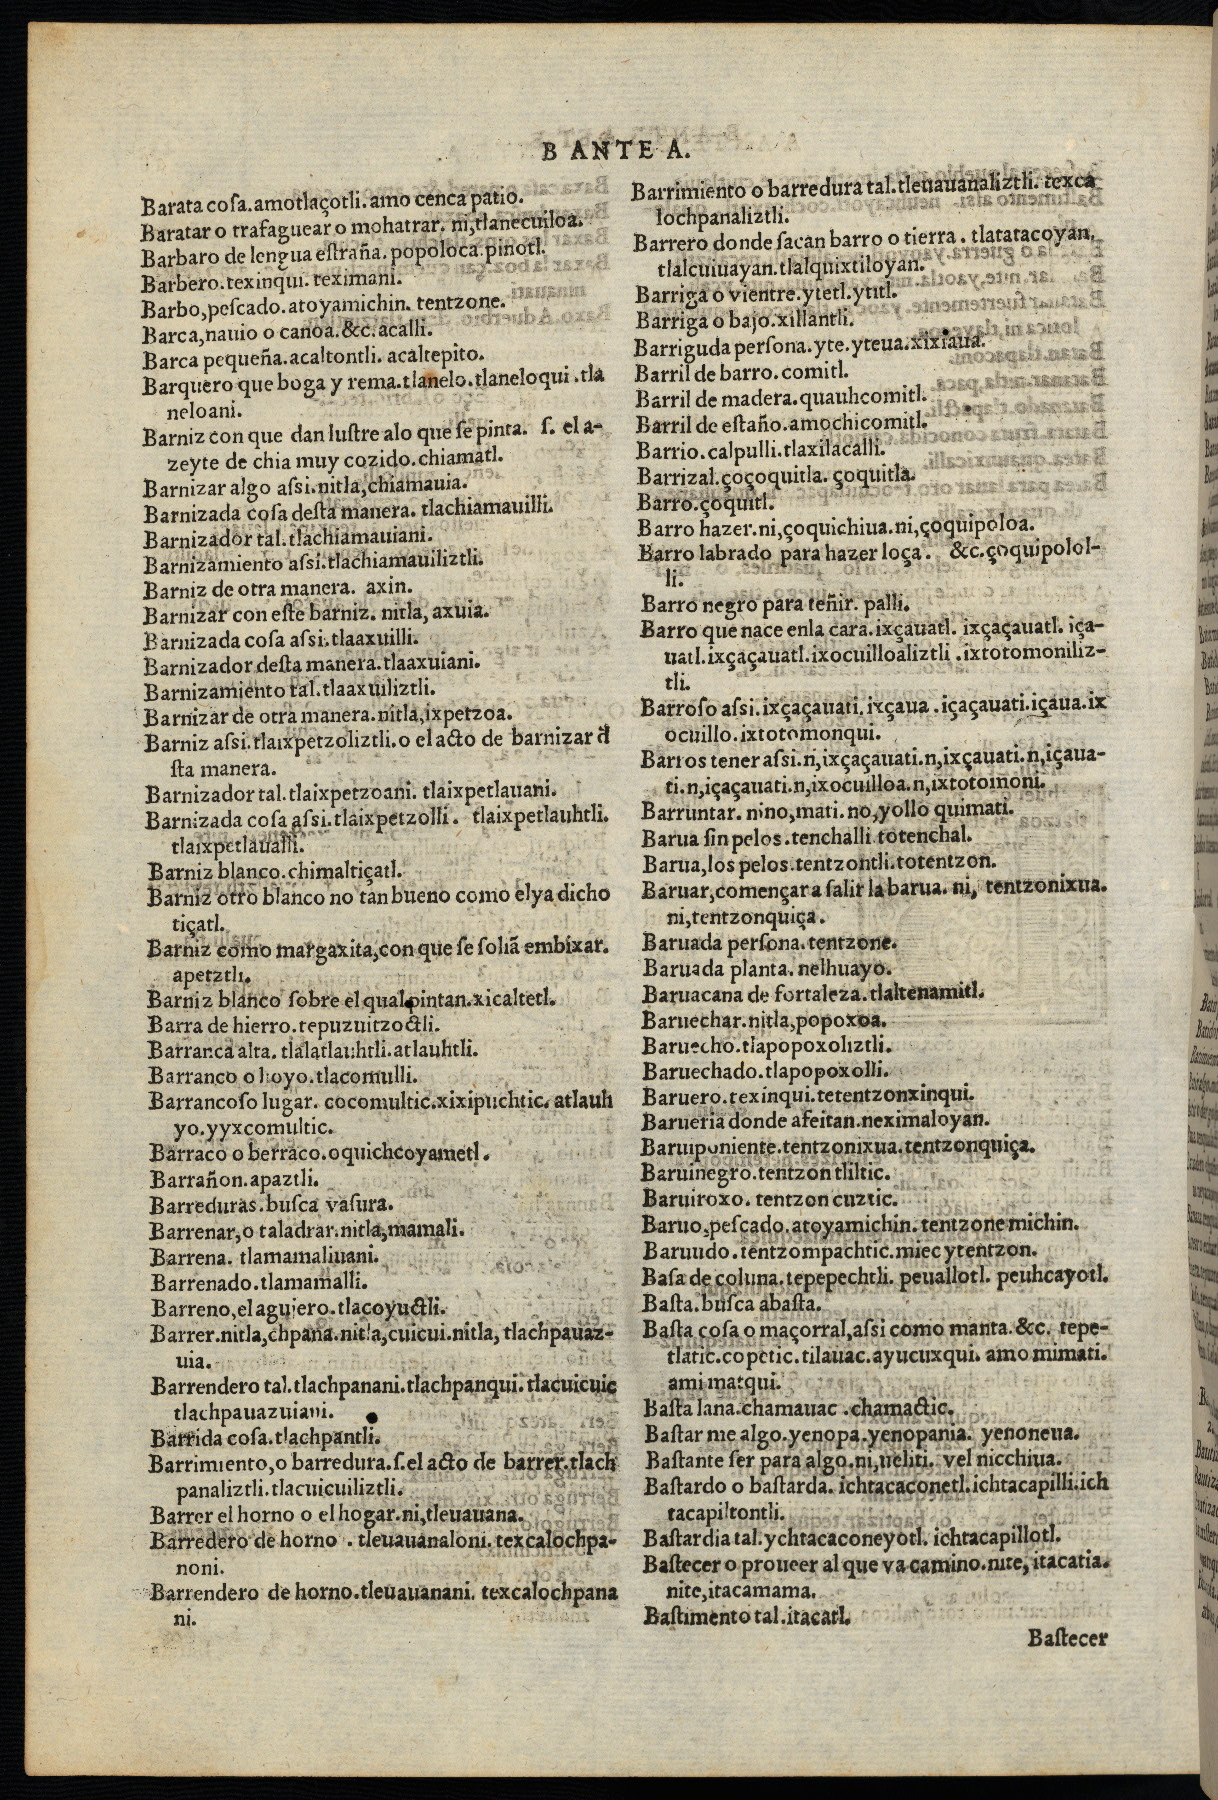 B ANTE A.
Barata coſa.amotlaçotli.amo cenca patio.
Baratar o trafaguear o mohatrar. ni,tlanecuiloa.
Barbaro de lengua eſtraña.popoloca.pinotl.
Barbero.texinqui.teximani.
Barbo,peſcado.atoyamichin. tentzone.
Barca,nauio o canoa.&c.acalli.
Barca pequeña.acaltontli.acaltepito.
Barquero que boga y rema.tlanelo.tlaneloqui.tla
neloani.
Barniz con que dan luſtre alo que ſe pinta. ſ. el a-
zeyte de chia muy cozido.chiamatl.
Barnizar algo aſsi.nitla,chiamauia.
Barnizada coſa deſta manera. tlachiamauilli.
Barnizador tal.tlachiamauiani.
Barnizamiento aſsi.tlachiamauiliztli.
Barniz de otra manera. axin.
Barnizar con eſte barniz. nitla, axuia.
Barnizada coſa aſsi.tlaaxuilli.
Barnizador deſta manera.tlaaxuiani.
Barnizamiento tal.tlaaxuiliztli.
Barnizar de otra manera.nitla,ixpetzoa.
Barniz aſsi.tlaixpetzoliztli.o el acto de barnizar đ
ſta manera.
Barnizador tal.tlaixpetzoani. tlaixpetlauani.
Barnizada coſa aſsi.tlaixpetzolli. tlaixpetlauhtli.
tlaixpetlaualli.
Barniz blanco.chimaltiçatl.
Barniz otro blanco no tan bueno como el ya dicho
tiçatl.
Barniz como margaxita,con que ſe ſoliã embixar.
apetztli.
Barniz blanco ſobre el qual pintan.xicaltetl.
Barra de hierro.tepuzuitzoctli.
Barranca alta. tlalatlauhtli.atlauhtli.
Barranco o hoyo.tlacomulli.
Barrancoſo lugar. cocomultic.xixipuchtic. atlauh
yo.yyxcomultic.
Barraco o berraco.oquichcoyametl.
Barrañon.apaztli.
Barreduras.buſca vaſura.
Barrenar,o taladrar.nitla,mamali.
Barrena. tlamamaliuani.
Barrenado.tlamamalli.
Barreno,el agujero.tlacoyuctli.
Barrer.nitla,chpana.nitla,cuicui.nitla, tlachpauaz-
uia.
Barrendero tal.tlachpanani.tlachpanqui.tlacuicuic
tlachpauazuiani.
Barrida coſa.tlachpantli.
Barrimiento,o barredura.ſ.el acto de barrer.tlach
panaliztli.tlacuicuiliztli.
Barrer el horno o el hogar.ni,tleuauana.
Barredero de horno . tleuauanaloni. texcalochpa-
noni.
Barrendero de horno.tleuauanani. texcalochpana
ni.
Barrimiento o barredura tal.tleuauanaliztli. texca
lochpanaliztli.
Barrero donde ſacan barro o tierra. tlatatacoyan,
tlalcuiuayan.tlalquixtiloyan.
Barriga o vientre.ytetl.ytitl.
Barriga o bajo.xillantli.
Barriguda perſona.yte.yteua.xixiaua.
Barril de barro.comitl.
Barril de madera.quauhcomitl.
Barril de eſtaño.amochicomitl.
Barrio.calpulli.tlaxilacalli.
Barrizal.çoçoquitla. çoquitla.
Barro.çoquitl.
Barro hazer.ni,çoquichiua.ni,çoquipoloa.
Barro labrado para hazer loça. &c.çoquipolol-
li.
Barro negro para teñir. palli.
Barro que nace enla cara.ixçauatl. ixçaçauatl. iça-
uatl.ixçaçauatl.ixocuilloaliztli.ixtotomoniliz-
tli.
Barroſo aſsi.ixçaçauati.ixçaua.içaçauati.içaua.ix
ocuillo.ixtotomonqui.
Barros tener aſsi.n,ixçaçauati.n,ixçauati.n,içaua-
ti.n,içaçauati.n,ixocuilloa.n,ixtotomoni.
Barruntar. nino,mati.no,yollo quimati.
Barua ſin pelos.tenchalli.totenchal.
Barua,los pelos.tentzontli.totentzon.
Baruar,començar a ſalir la barua. ni, tentzonixua.
ni,tentzonquiça.
Baruada perſona.tentzone.
Baruada planta. nelhuayo.
Baruacana de fortaleza.tlaltenamitl.
Baruechar.nitla,popoxoa.
Baruecho.tlapopoxoliztli.
Baruechado.tlapopoxolli.
Baruero.texinqui.tetentzonxinqui.
Barueria donde afeitan.neximaloyan.
Baruiponiente.tentzonixua.tentzonquiça.
Baruinegro.tentzon tliltic.
Baruiroxo. tentzon cuztic.
Baruo,peſcado.atoyamichin.tentzone michin.
Baruudo.tentzompachtic.miec ytentzon.
Baſa de coluna.tepepechtli. peuallotl. peuhcayotl.
Baſta.buſca abaſta.
Baſta coſa o maçorral,aſsi como manta.&c. tepe-
tlatic.copetic.tilauac.ayucuxqui. amo mimati.
ami matqui.
Baſta lana.chamauac.chamactic.
Baſtar me algo.yenopa.yenopania. yenoneua.
Baſtante ſer para algo.ni,ueliti. vel nicchiua.
Baſtardo o baſtarda. ichtacaconetl.ichtacapilli.ich
tacapiltontli.
Baſtardia tal.ychtacaconeyotl. ichtacapillotl.
Baſtecer o proueer al que va camino.nite, itacatia.
nite,itacamama.
Baſtimento tal.itacatl.
Baſtecer